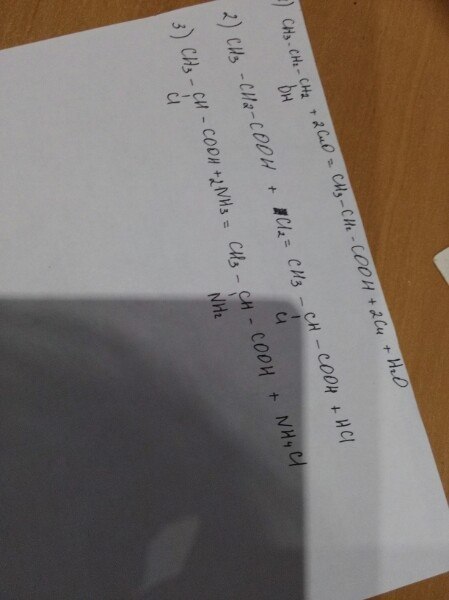 1) CH3-CH2-CH2 + 2CuO = CH3-CH2-COOH + 2Cu + H2O
OH
2) CH3-CH2-COOH + Cl2 = CH3-CH-COOH + HCl
Cl
3) CH3-CH-COOH + 2NH3 = CH3-CH-COOH + NH4Cl
Cl NH2